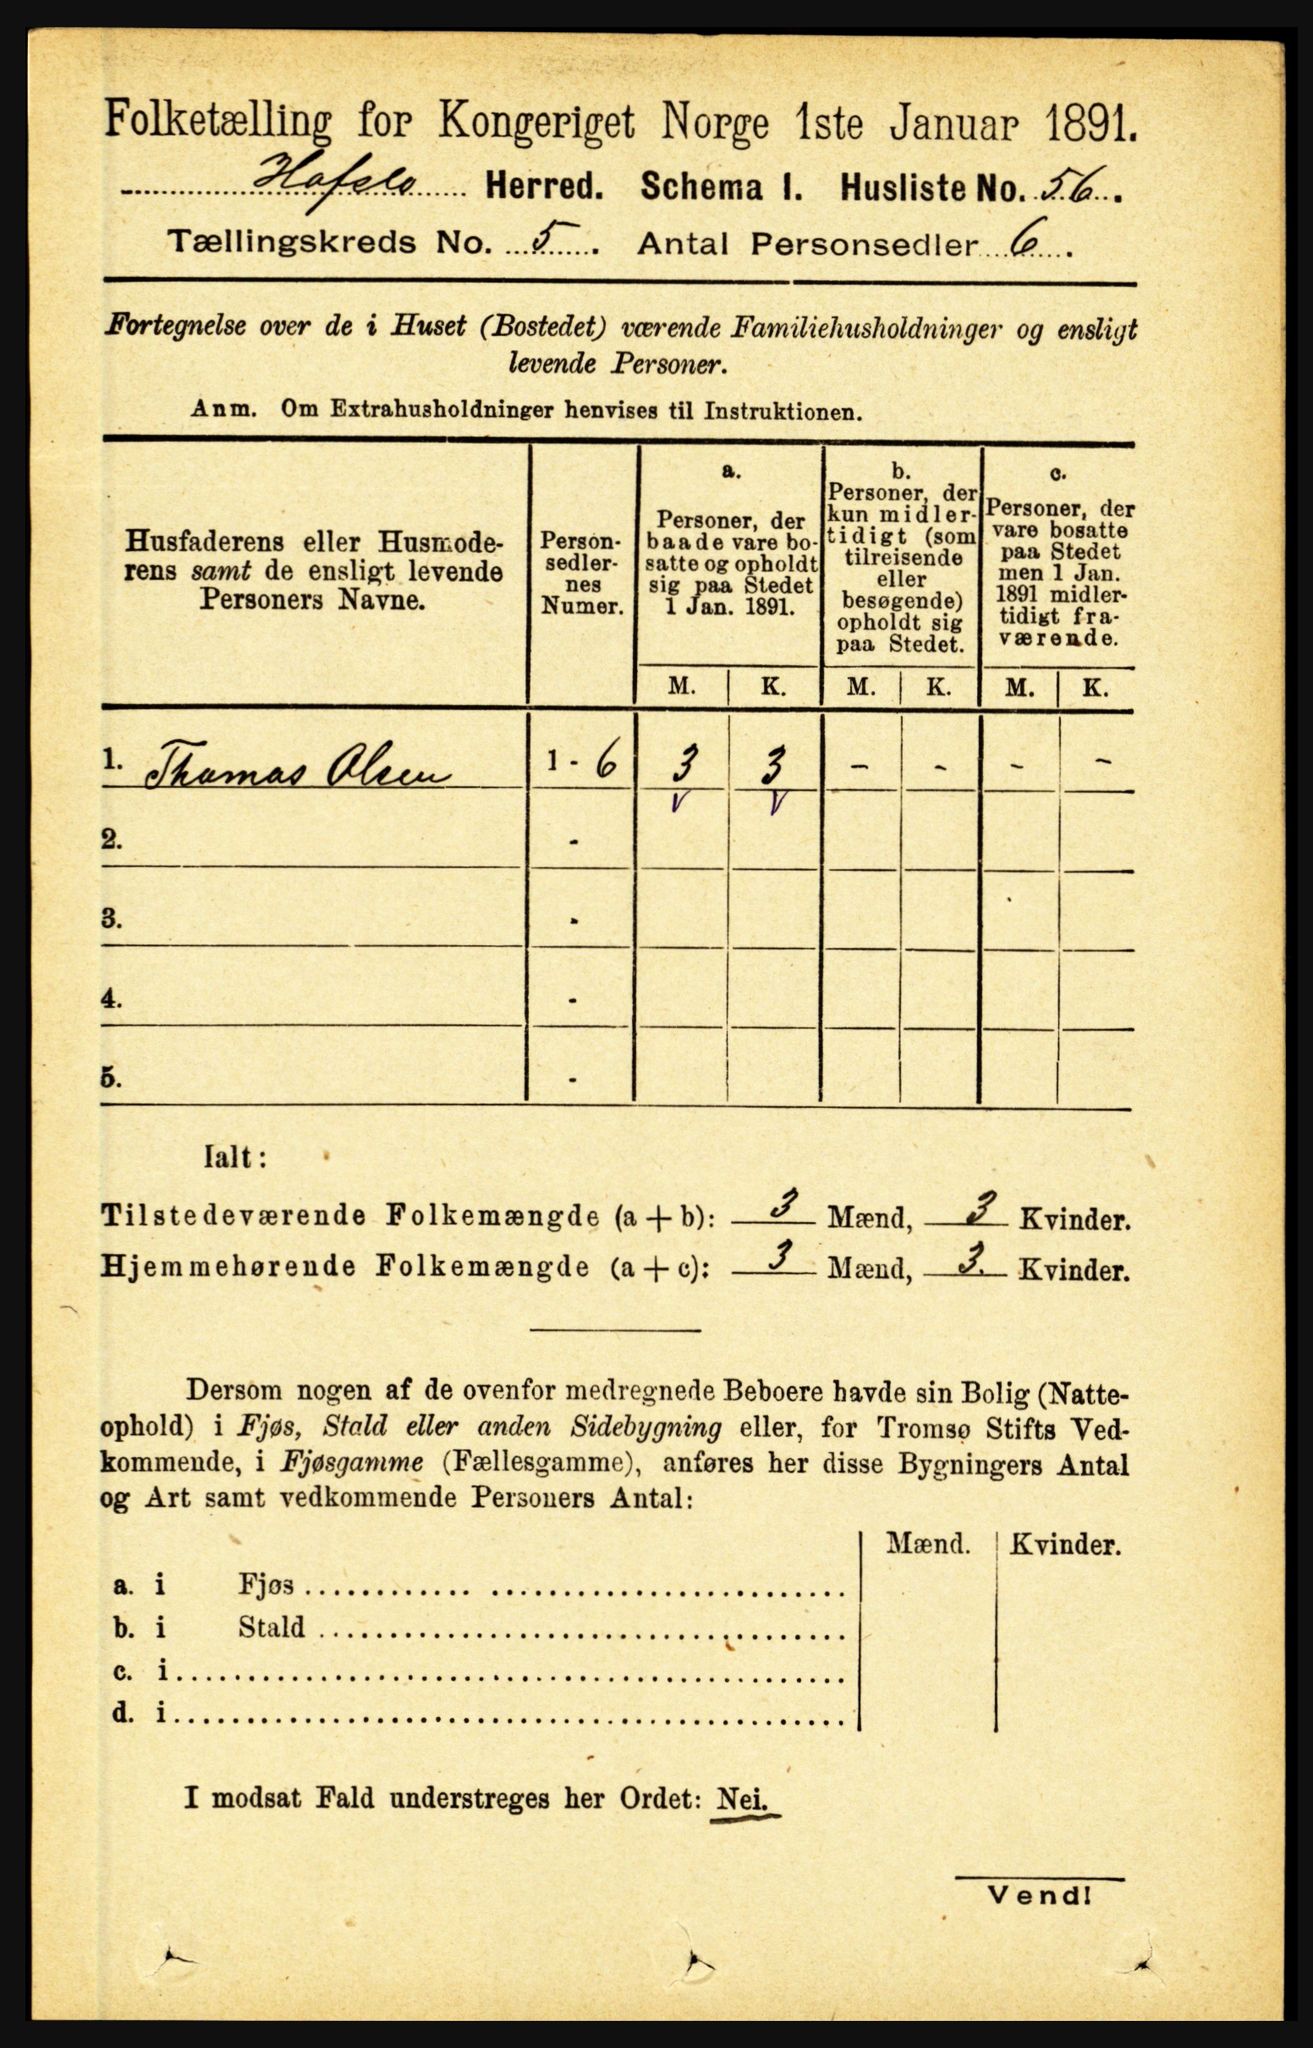 Folketælling for Kongeriget Norge 1ste Januar 1891.
Hafslo Herred. Schema I. Husliste No. 56.
Tællingskreds No. 5. Antal Personsedler 6.
Fortegnelse over de i Huset (Bostedet) værende Familiehusholdninger og ensligt
levende Personer.
Anm. Om Extrahusholdninger henvises til Instruktionen.
Husfaderens eller Husmode-
rens samt de ensligt levende
Personers Navne.
Person-
sedler-
nes
Numer.
a.
Personer, der
baade vare bo-
satte og opholdt
sig paa Stedet
1 Jan. 1891.
b.
Personer, der
kun midler-
tidigt (som
tilreisende
eller
besøgende)
opholdt sig
paa Stedet.
c.
Personer, der
vare bosatte
paa Stedet
men 1 Jan.
1891 midler-
tidigt fra-
værende.
M. K. M. K. M. K.
1. Thomas Olsen 1 - 6 3 3 - - - -
v v
2. -
3. -
4. -
5. -
Ialt:
Tilstedeværende Folkemængde (a + b): 3 Mænd, 3 Kvinder.
Hjemmehørende Folkemængde (a + c): 3 Mænd, 3. Kvinder.
Dersom nogen af de ovenfor medregnede Beboere havde sin Bolig (Natte-
ophold) i Fjøs, Stald eller anden Sidebygning eller, for Tromsø Stifts Ved-
kommende, i Fjøsgamme (Fællesgamme), anføres her disse Bygningers Antal
og Art samt vedkommende Personers Antal:
Mænd. Kvinder.
a. i Fjøs
b. i Stald
c. i
d. i
I modsat Fald understreges her Ordet: Nei.
Vend!